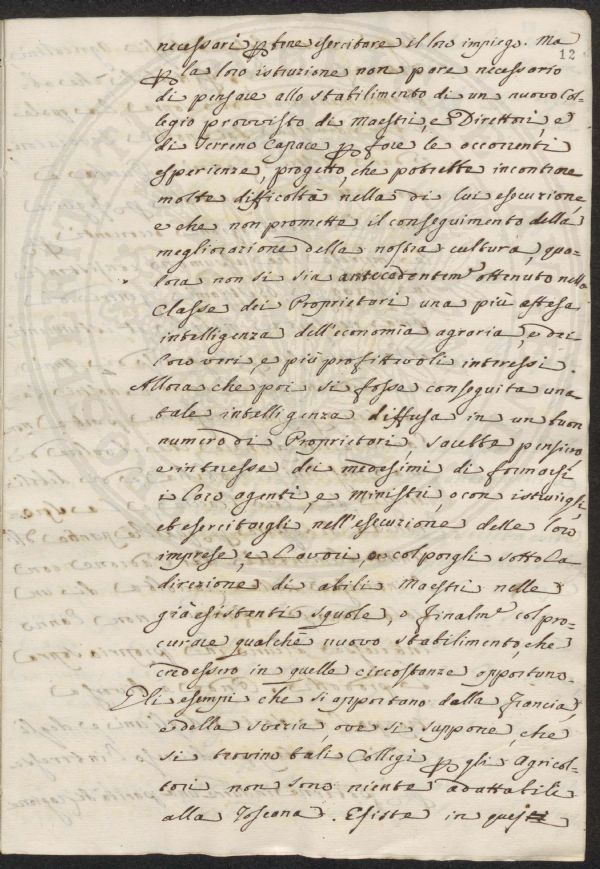 necessarj p bene esercitare il loro impiego. Ma
12
p la loro istruzione non pare necessario
di pensare allo stabilimento di un nuovo Col-
legio provvisto di Maestri, e Direttori, e
di Terreno Capace p fare le occorrenti
esperienze, progetto, che potrebbe incontrare
molte difficoltà nella di lui esecuzione,
e che non promette il conseguimento della
megliorazione della nostra cultura, qua-
lora non si sia antecedentem.e ottenuto nella
Classe dei Proprietari una più estesa
intelligenza dell'economia agraria, e dei
loro veri, e più profittevoli interessi.
Allora che poi si fosse conseguita una
tale intelligenza diffusa in un buon
numero di Proprietari, sarebbe pensiero
e interesse dei medesimi di formarsi
i loro agenti, e Ministri, o con istruirgli,
et esercitargli nell'esecuzione delle loro
imprese, e Lavori, o col porgli sotto la
direzione di abili Maestri nelle
già esistenti squole, o finalm.e col pro-
curare qualche nuovo stabilimento, che
credessero in quelle circostanze opportuno.
Gli esempi che si apportano dalla Francia,
e della Svezia, ove si suppone, che
si trovino tali Collegi p gli Agricol-
tori non sono niente adattabili
alla Toscana. Esiste in queste